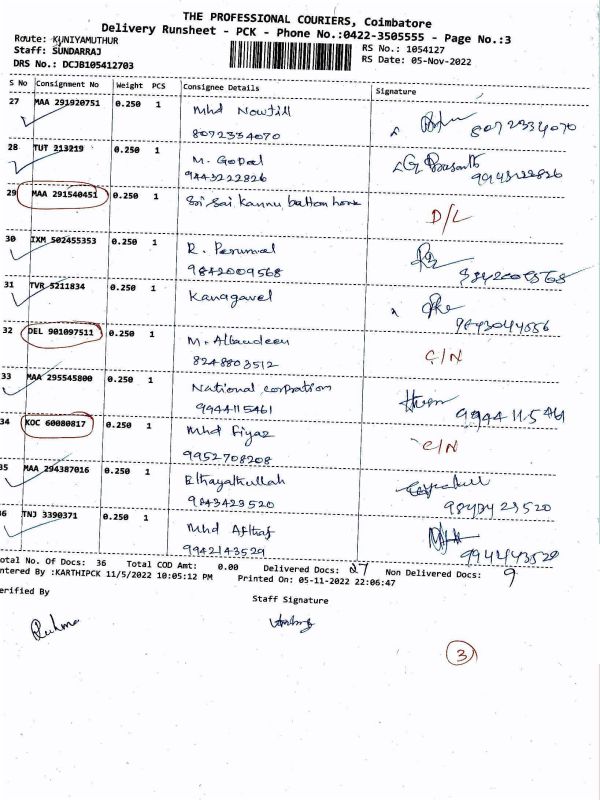 THE PROFESSIONAL COURIERS, Coimbatore
Delivery Runsheet - PCK - Phone No.:0422-3505555 - Page No.:3
Route: KUNIYAMUTHUR
Staff: SUNDARRAJ
DRS No.: DCJB105412703
RS No.: 1054127
RS Date: 05-Nov-2022
S No Consignment No Weight PCS Consignee Details Signature
27 MAA 291920751 0.250 1 Mhd Nowfill
8072334070 8072334070
28 TUT 213219 0.250 1 M. Gopal
9443222826
29 MAA 291540451 0.250 1 Sri Sai Kannu button home D/L
30 IXM 502455353 0.250 1 R. Perumal
9842009568 9842009568
31 TVR 5211834 0.250 1 Kanagavel
9843044556
32 DEL 901097511 0.250 1 M. Allaudeen
8248803512 C/N
33 MAA 295545800 0.250 1 National corpration
9944115461 9944115461
34 KOC 60080817 0.250 1 Mhd Fiyaz C/N
9952708208
35 MAA 294387016 0.250 1 Ethayathullah
9843423520
36 TNJ 3390371 0.250 1 Mhd Afthaf
9942143529
otal No. Of Docs: 36 Total COD Amt: 0.00 Delivered Docs: 27 Non Delivered Docs: 9
ntered By :KARTHIPCK 11/5/2022 10:05:12 PM Printed On: 05-11-2022 22:06:47
erified By
Staff Signature
3